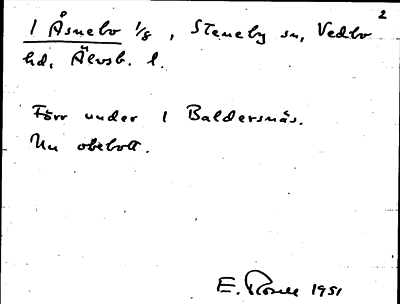 2
1 Åsnebo 1/8, Steneby sn, Vedbo
hd, Älvsb. l.
Förr under 1 Baldersnäs.
Nu obebott.
E. Rosell 1951